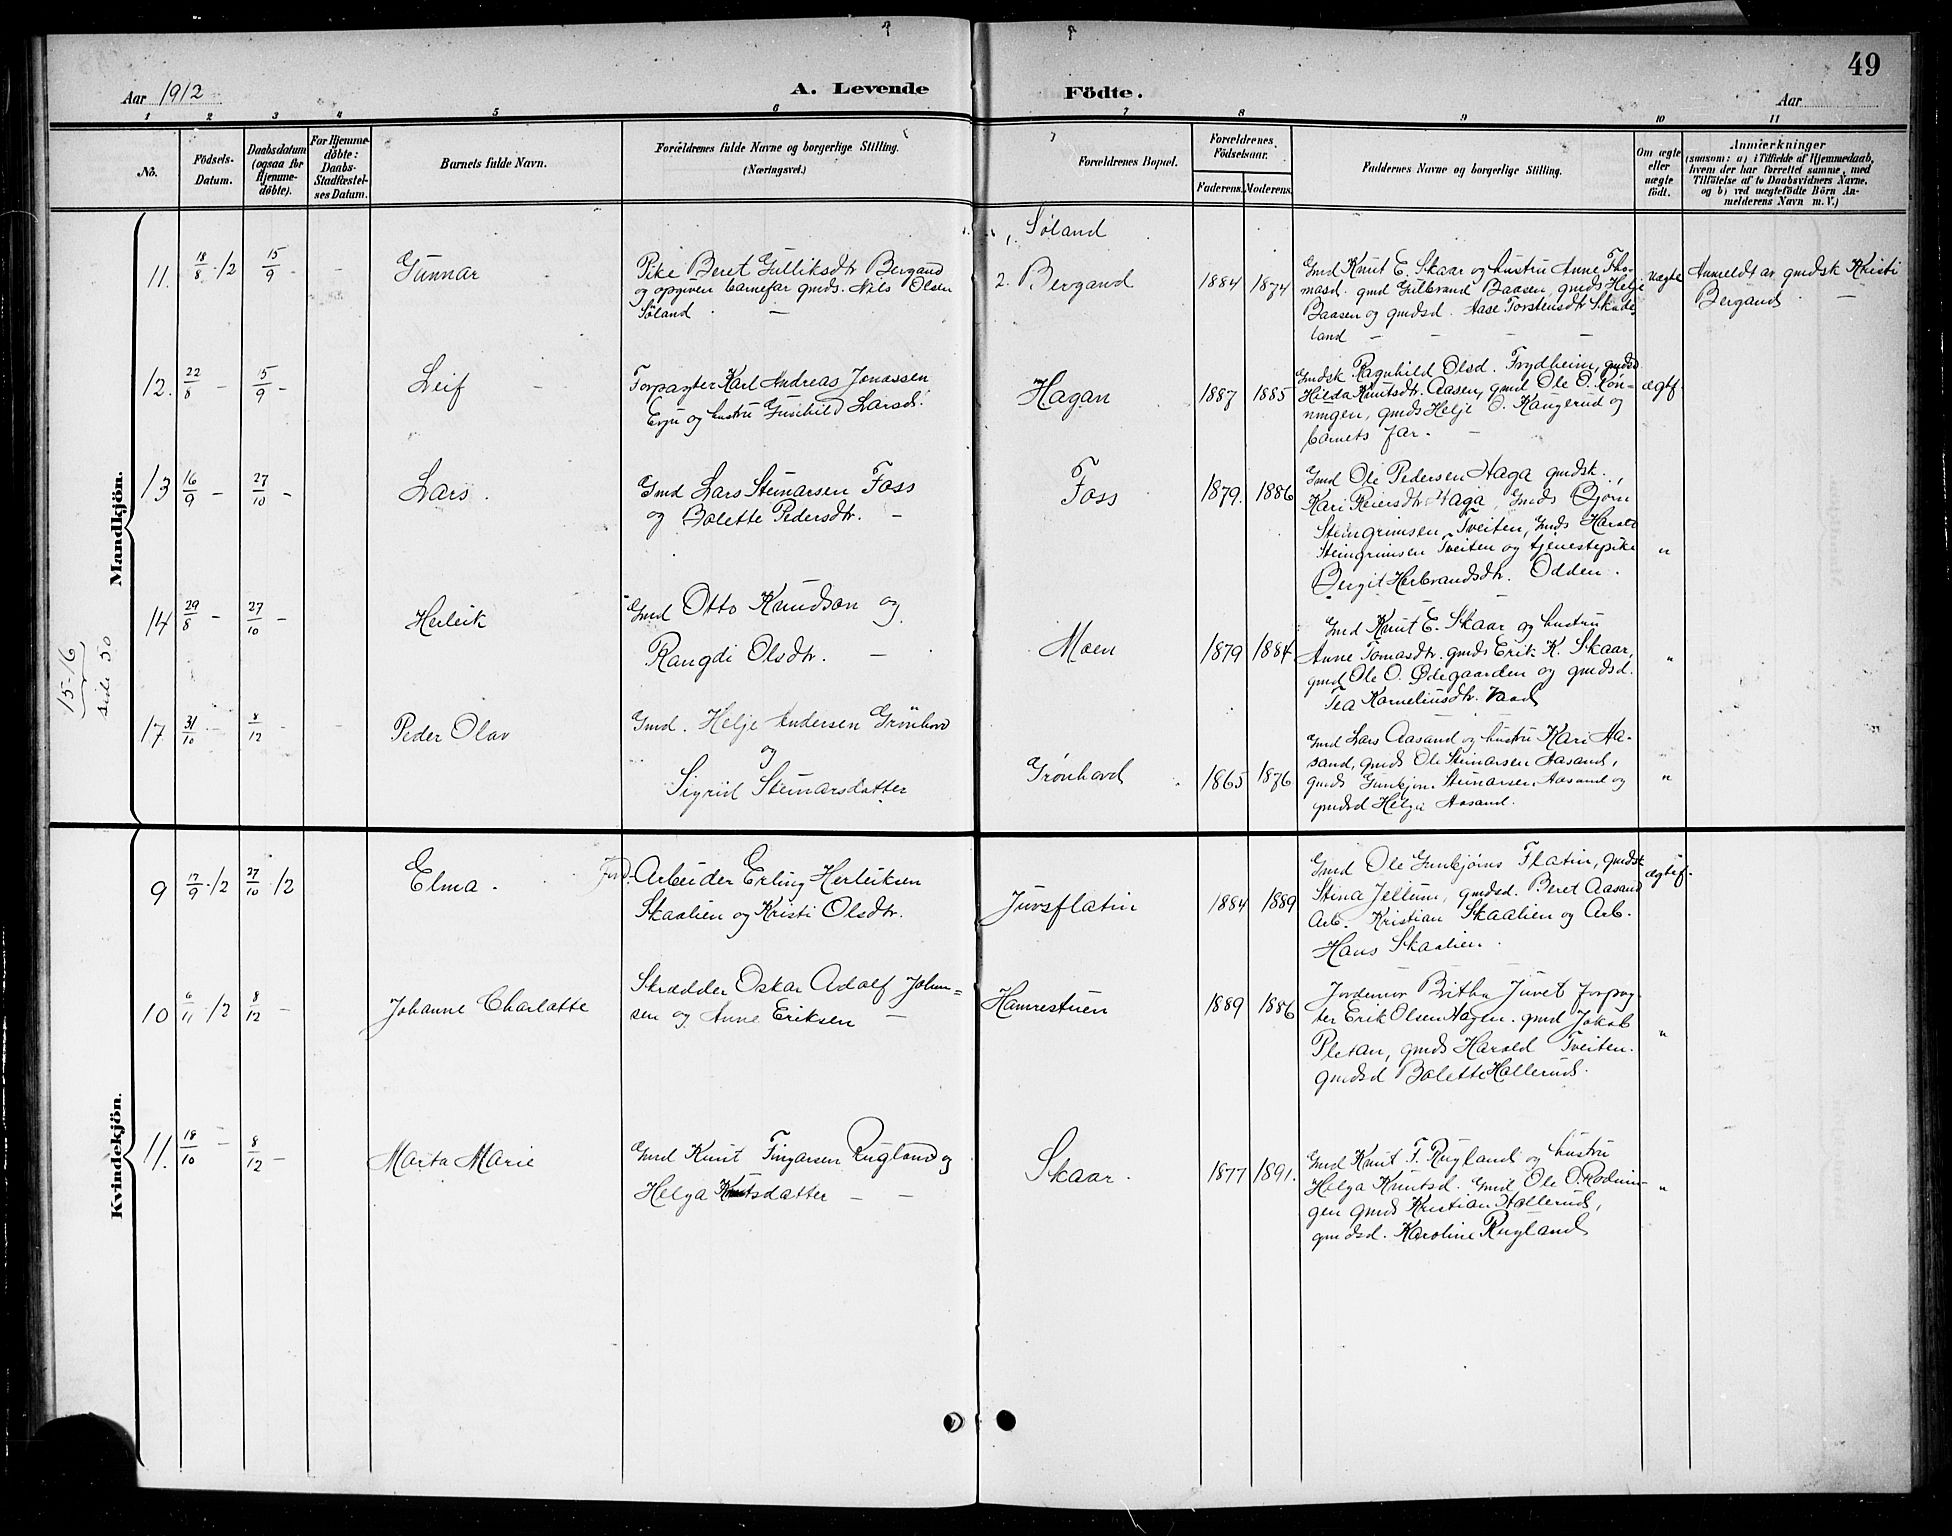 49
Aar 1912
A. Levende
Födte.
Aar
1 2 3 4 5 6 7 8 9 10 11
No.
Födsels-
Datum.
Daabsdatum
(ogsaa for
Hjemme-
döbte).
For Hjemme-
döbte:
Daabs-
Stadfæstel-
ses Datum.
Barnets fulde Navn.
Forældrenes fulde Navne og borgerlige Stilling.
(Næringsvei.)
Forældrenes Bopæl.
Forældrenes
Födselsaar.
Faderens. Moderens.
Faddernes Navne og borgerlige Stilling.
Om ægte
eller
uægte
födt.
Anmærkninger
(saasom: a) i Tilfælde af Hjemmedaab,
hvem der har forrettet samme, med
Tilföielse af to Daabsvidners Navne,
og b) ved uægtefödte Börn An-
melderens Navn m. V.)
Mandkjön.
15-16
side 50
11. 18/8 12 15/9 - Gunnar
Pike Beret Gulliksdtr Bergand
og opgiven barnefar gmds. Nils Olsen
Søland -
1. Søland
2. Bergand
1884 1874
Gmd Knut E. Skaar og hustru Anne Tho-
masd. gmd Gulbrand Baasen, gmds Helje
Baasen og gmdsd. Aase Torstensdtr Skade-
land -
uægte
Anmeldt av gmdsk Kristi
Bergand -
12. 22/8 - 15/9 - Leif -
Forpagter Karl Andreas Jonassen
Evju og hustru Gunhild Larsd.
Hagan
1887 1885
Gmdsk Ragnhild Olsd. Frydheim, gmdsd
Hilda Knutsdtr. Aasen, gmd Ole O. Røn-
ningen, gmds Helje O. Kaugerud og
barnets far. -
ægtf.
13 16/9 - 27/10 - Lars.
Gmd Lars Steinarsen Foss
og Bolette Pedersdtr. -
Foss
1879. 1886
Gmd Ole Pedersen Haga gmdsk.
Kari Reiersdtr Haga, Gmds Bjørn
Steingrimsen Tveiten, Gmds Harald
Steingrimsen Tveiten og tjenestepike
Bergit Herbrandsdtr. Odden.
"
14 29/8 - 27/10 - Herleik
Gmd Otto Knudson og
Rangdi Olsdtr. -
Moen
1879 1884
Gmd Knut E. Skaar og hustru
Anne Tomasdtr. gmds Erik K. Skaar,
gmd Ole O. Ødegaarden og gmdsd.
Tea Korneliusdtr. Vaad
"
17. 31/10 - 8/12 - Peder Olav
Gmd. Helje Andersen Grönhovd
og
Sigrid Steinarsdatter
Grønhovd
1865 1876
Gmd Lars Aasand og hustru Kari Aa-
sand, gmds Ole Steinarsen Aasand,
gmds Gunbjørn Steinarsen Aasand og
gmdsd Helga Aasand.
"
Kvindekjön.
9 17/9 12 27/10 12 Elma.
Arbeider Erling Herleiksen
Skaalien og Kristi Olsdtr.
Juvsflatin
1884 1889
Gmd Ole Gunbjørns Flatin, gmdsk
Stina Jellum, gmdsd. Beret Aasand
Arb. Kristian Skaalien og Arb.
Hans Skaalien.
ægtef.
10 6/11 12 8/12 - Johanne Charlotte
Skrædder Oskar Adolf Johan=
sen og Anne Eriksen -
Hamrestuen
1889 1886
Jordemor Britha Juvet forpag-
ter Erik Olsen Hagen. gmd Jakob
Pletan, gmds Harald Tveiten.
gmdsd Bolette Hallerud.
"
11. 18/10 - 8/12 - Marta Marie
Gmd Knut Fingarsen Rugland og
Helga Knutsdatter - -
Skaar.
1877 1891.
Gmd Knut F. Rugland og hustru
Helga Knutsd. Gmd Ole O. Rodnin-
gen gmds Kristian Hallerud,
gmdsd. Karoline Rugland
"